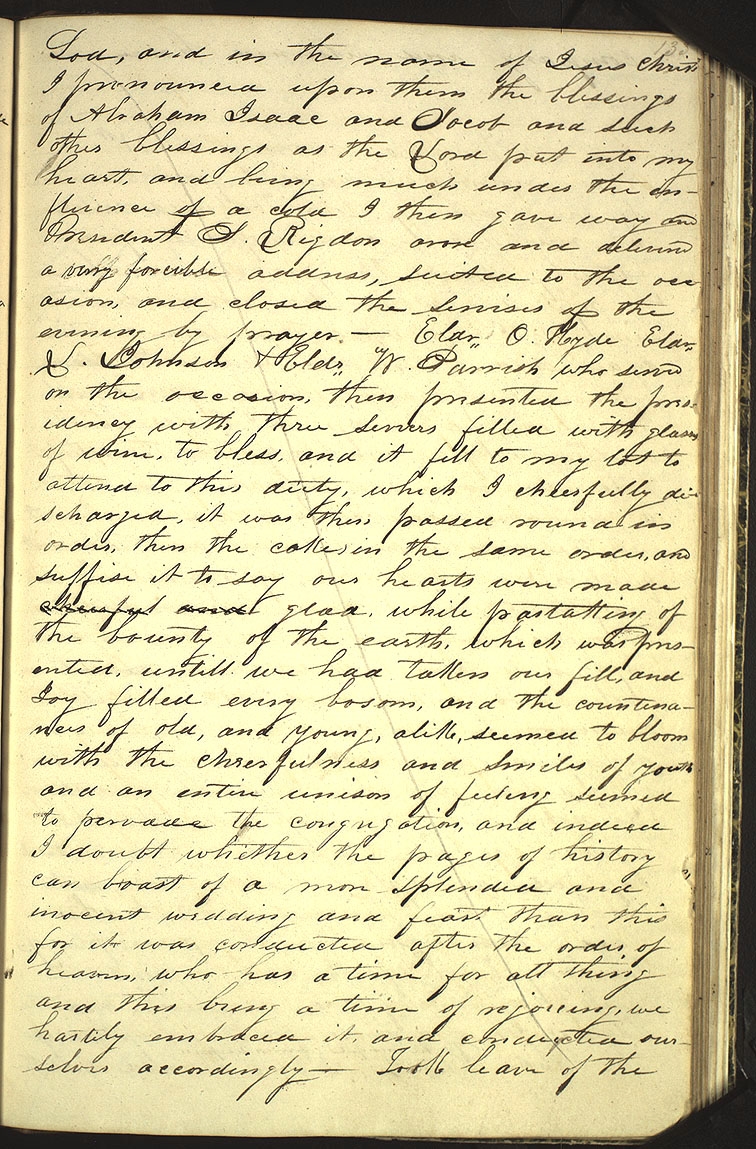 God, and in the name of Jesus Christ
I pronounced upon them the blessings
of Abraham Isaac and Jacob and such
other blessings as the Lord put into my
heart, and being much under the in-
fluence of a cold I then gave way and
President S. Rigdon arose and delivered
a very forcible address, suited to the occ
asion, and closed the servises of the
evening by prayer — Eldr. O. Hyde Eldr.
L. Johnson & Eldr. W. Parrish who served
on the occasion, then presented the pres-
idency with three servers filled with glasses
of wine, to bless, and it fell to my lot to
attend to this duty, which I cheerfully di-
scharged, it was then passed round in
order, then the cake, in the same order, and
suffise it to say our hearts were made
cheerful and glad, while partaking of
the bounty of the earth, which was pres-
ented, untill we had taken our fill, and
Joy filled every bosom, and the countena-
nces of old, and young, alike, seemed to bloom
with the cheerfulness and smiles of youth
and an entire unison of feeling seemed
to pervade the congregation, and indeed
I doubt whether the pages of history
can boast of a more splended and
inocent wedding and feast than this
for it was conducted after the order of
heaven, who has a time for all thing
and this being a time of rejoicing, we
hartily embraced it, and conducted our-
selves accordingly — Took leave of the